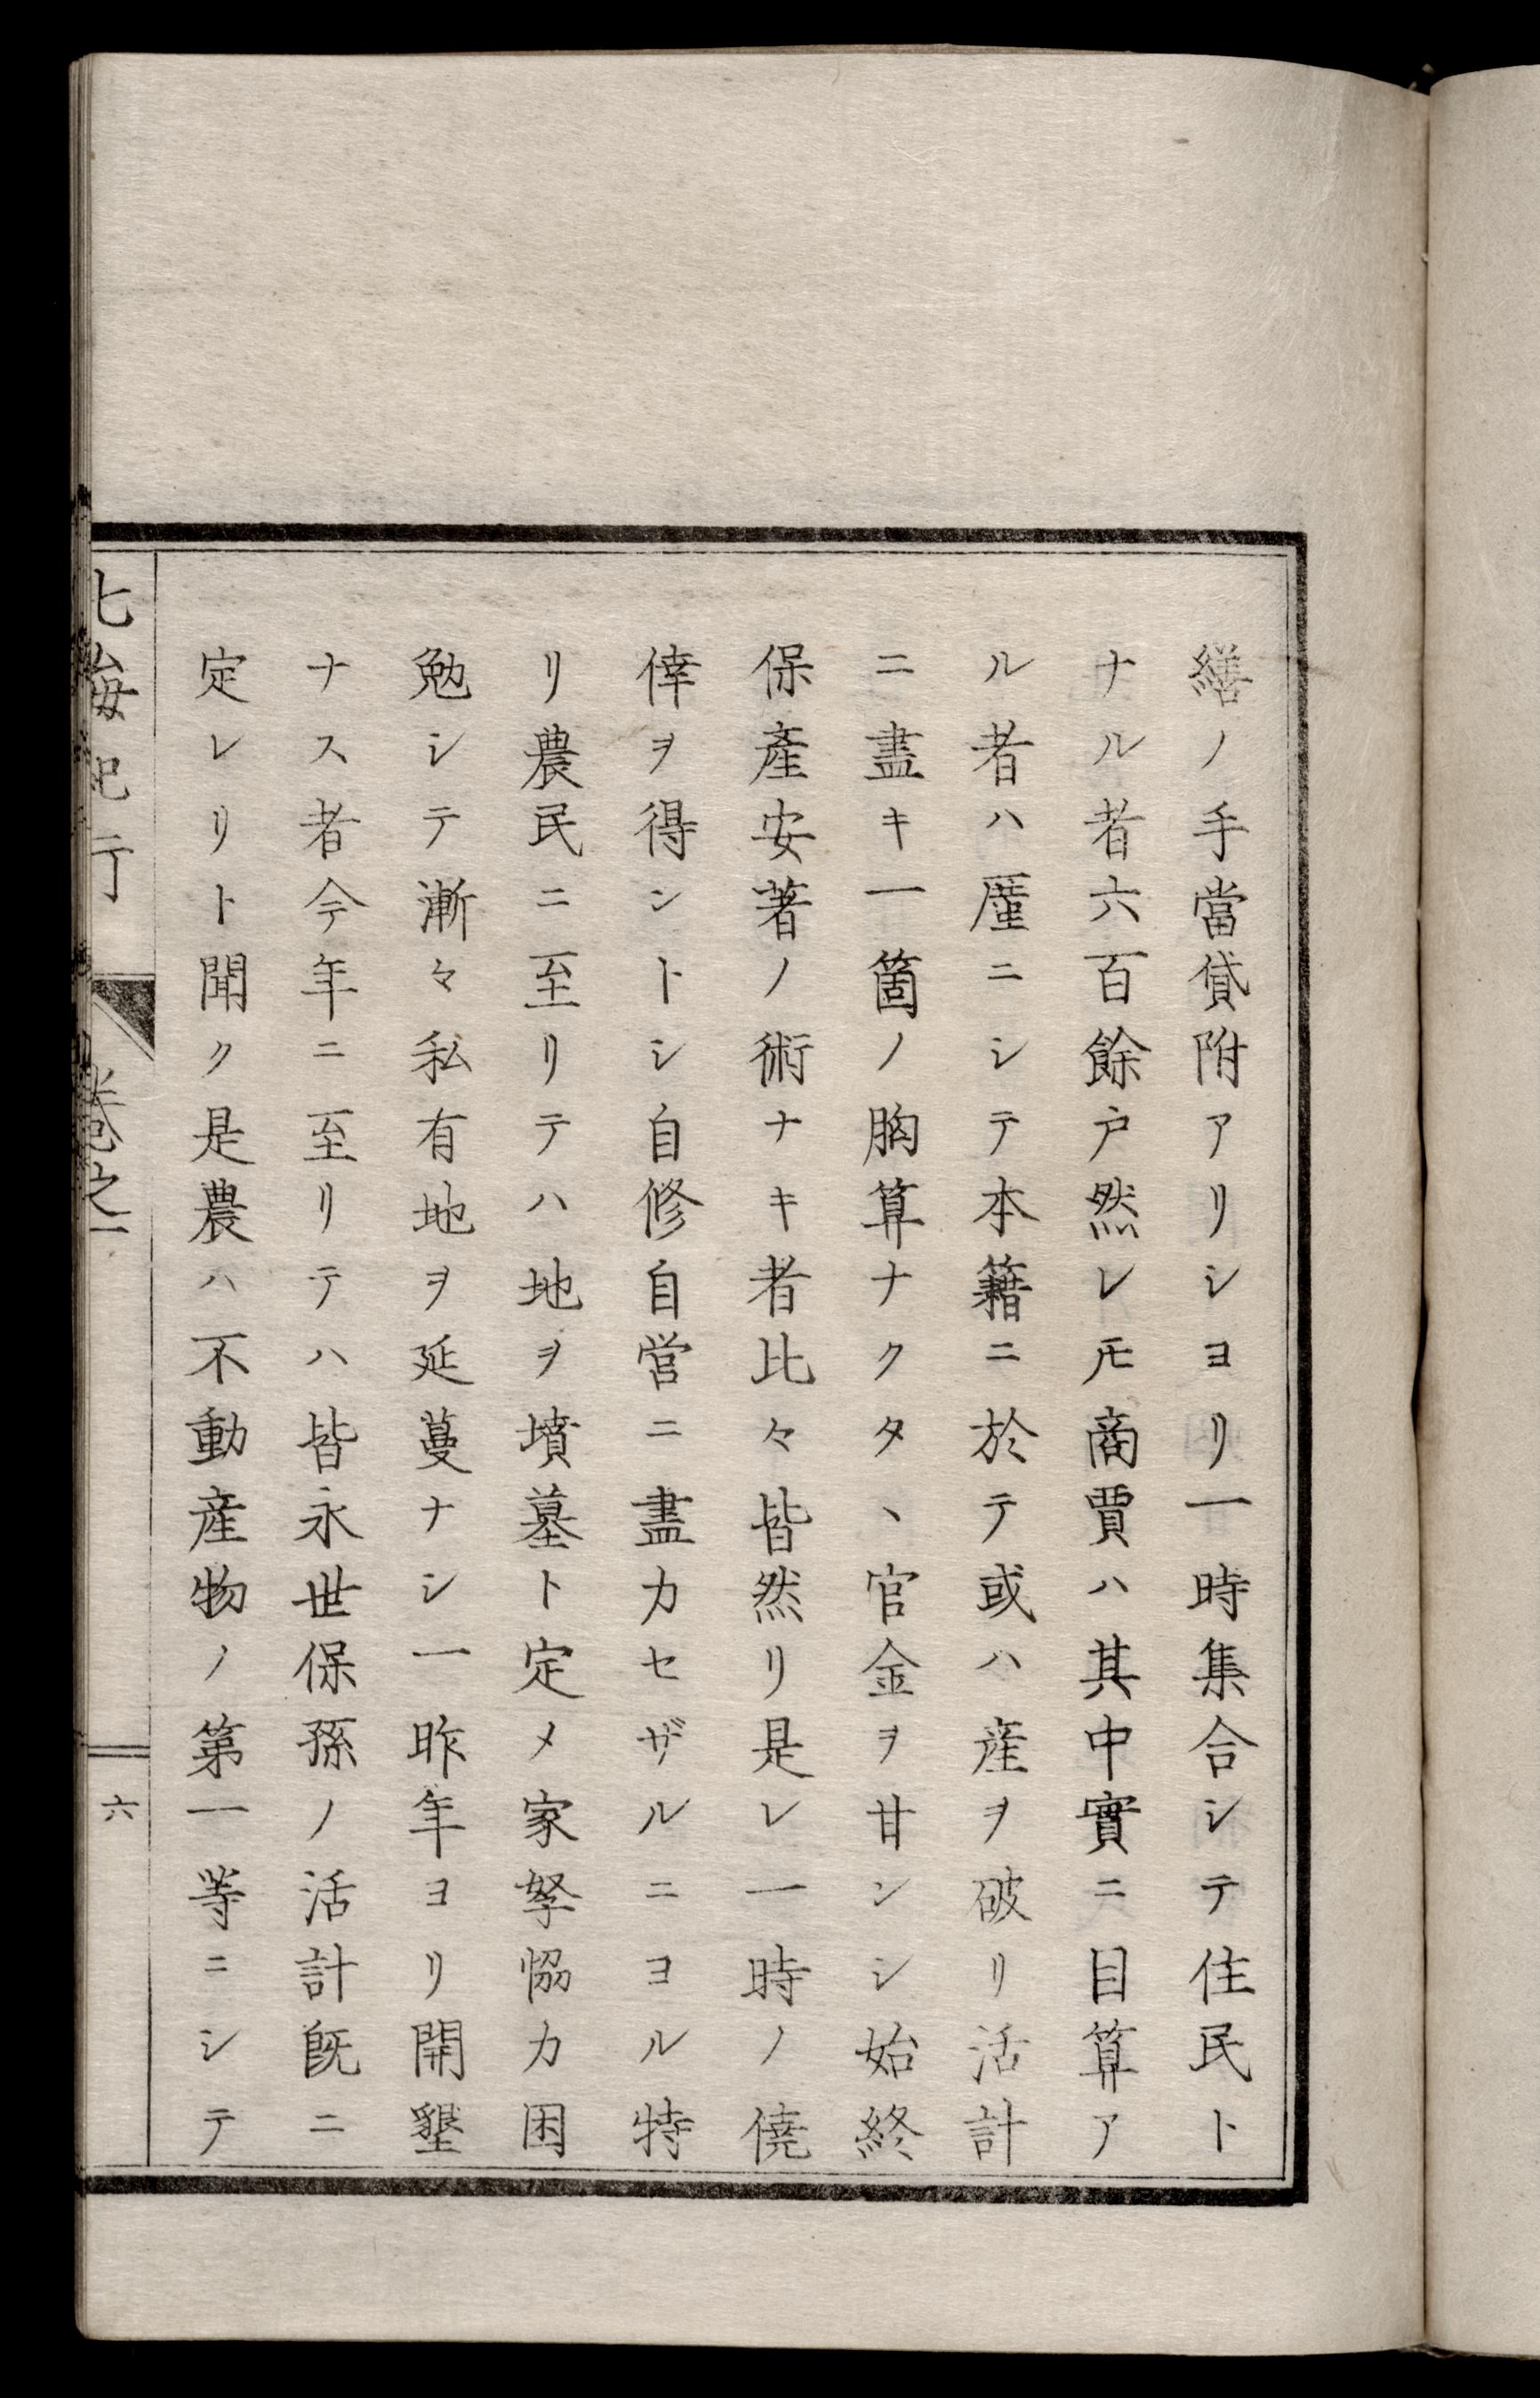 繕ノ手當貸附アリシヨリ一時集合シテ住民ト
ナル者六百餘戸然レ𪜈商賈ハ其中實ニ目算ア
ル者ハ厪ニシテ本籍ニ於テ或ハ産ヲ破リ活計
ニ盡キ一箇ノ胸算ナクタヽ官金ヲ甘ンシ始終
保產安著ノ術ナキ者比々皆然リ是レ一時ノ僥
倖ヲ得ントシ自修自営ニ盡力セザルニヨル特
リ農民ニ至リテハ地ヲ墳墓ト定メ家孥恊力困
勉シテ漸々私有地ヲ延蔓ナシ一昨年ヨリ開墾
ナス者今年ニ至リテハ皆永世保孫ノ活計既ニ
定レリト聞ク是農ハ不動産物ノ第一等ニシテ
北海紀行 卷之一 六